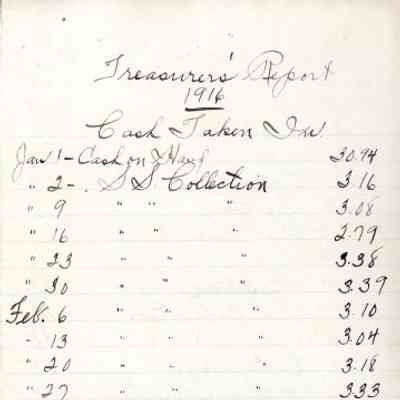 Treasurers' Report
1916
Cash Taken In
Jan 1 - Cash on Hand 30.94
" 2 - . S S Collection 3.16
" 9 " " " 3.08
" 16 " " " 2.79
" 23 " " " 3.38
" 30 " " " 3.39
Feb. 6 " " " 3.10
" 13 " " " 3.04
" 20 " " " 3.18
" 27 " " " 3.33